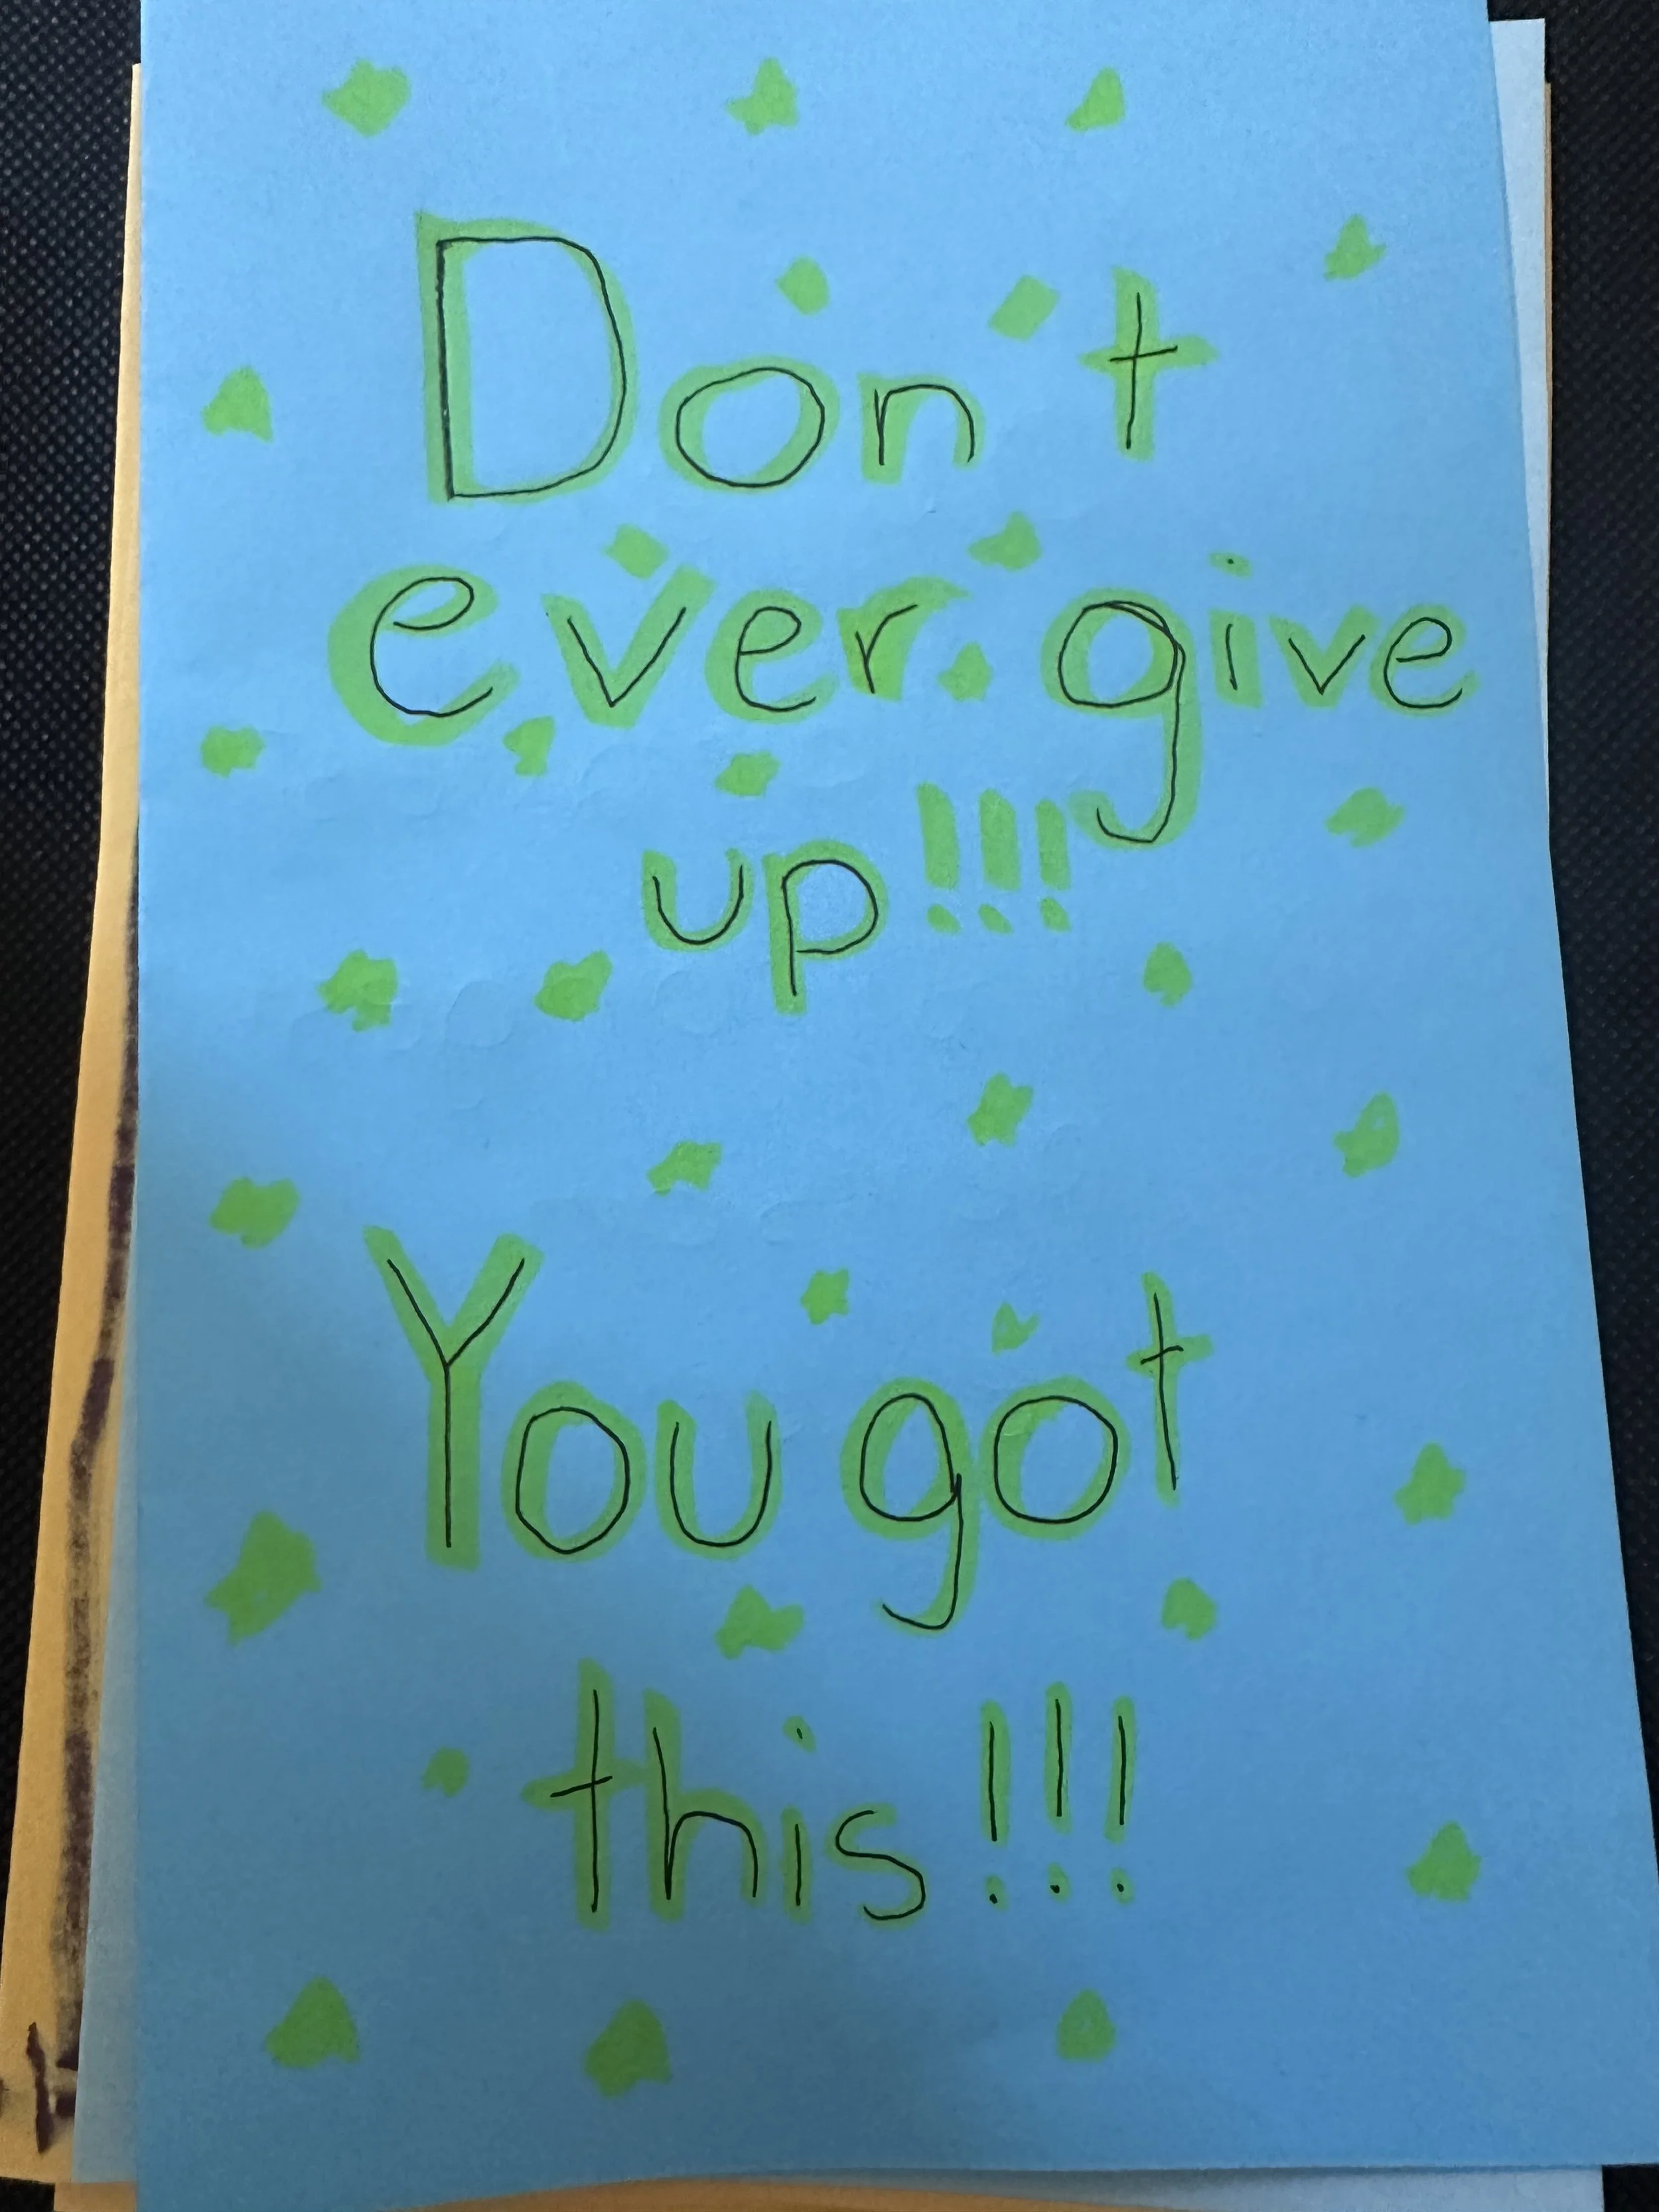 Don't
ever give
up!!!
You got
this!!!